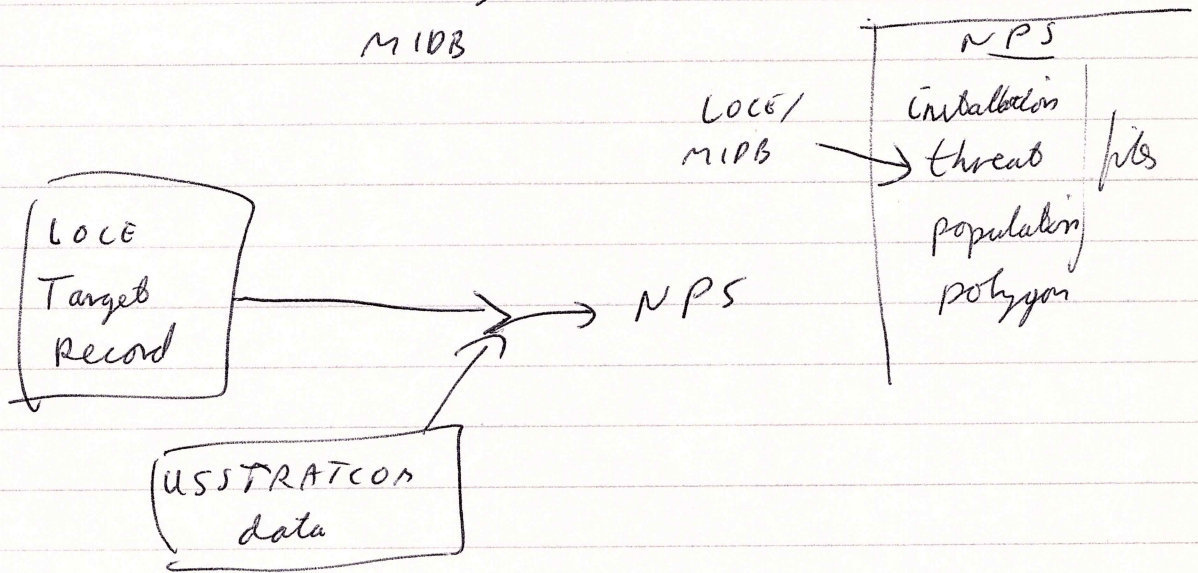 MIDB
NPS
LOCE/
MIDB
installation
threat
population
polygon
files
LOCE
Target
Record
NPS
USSTRATCOM
data